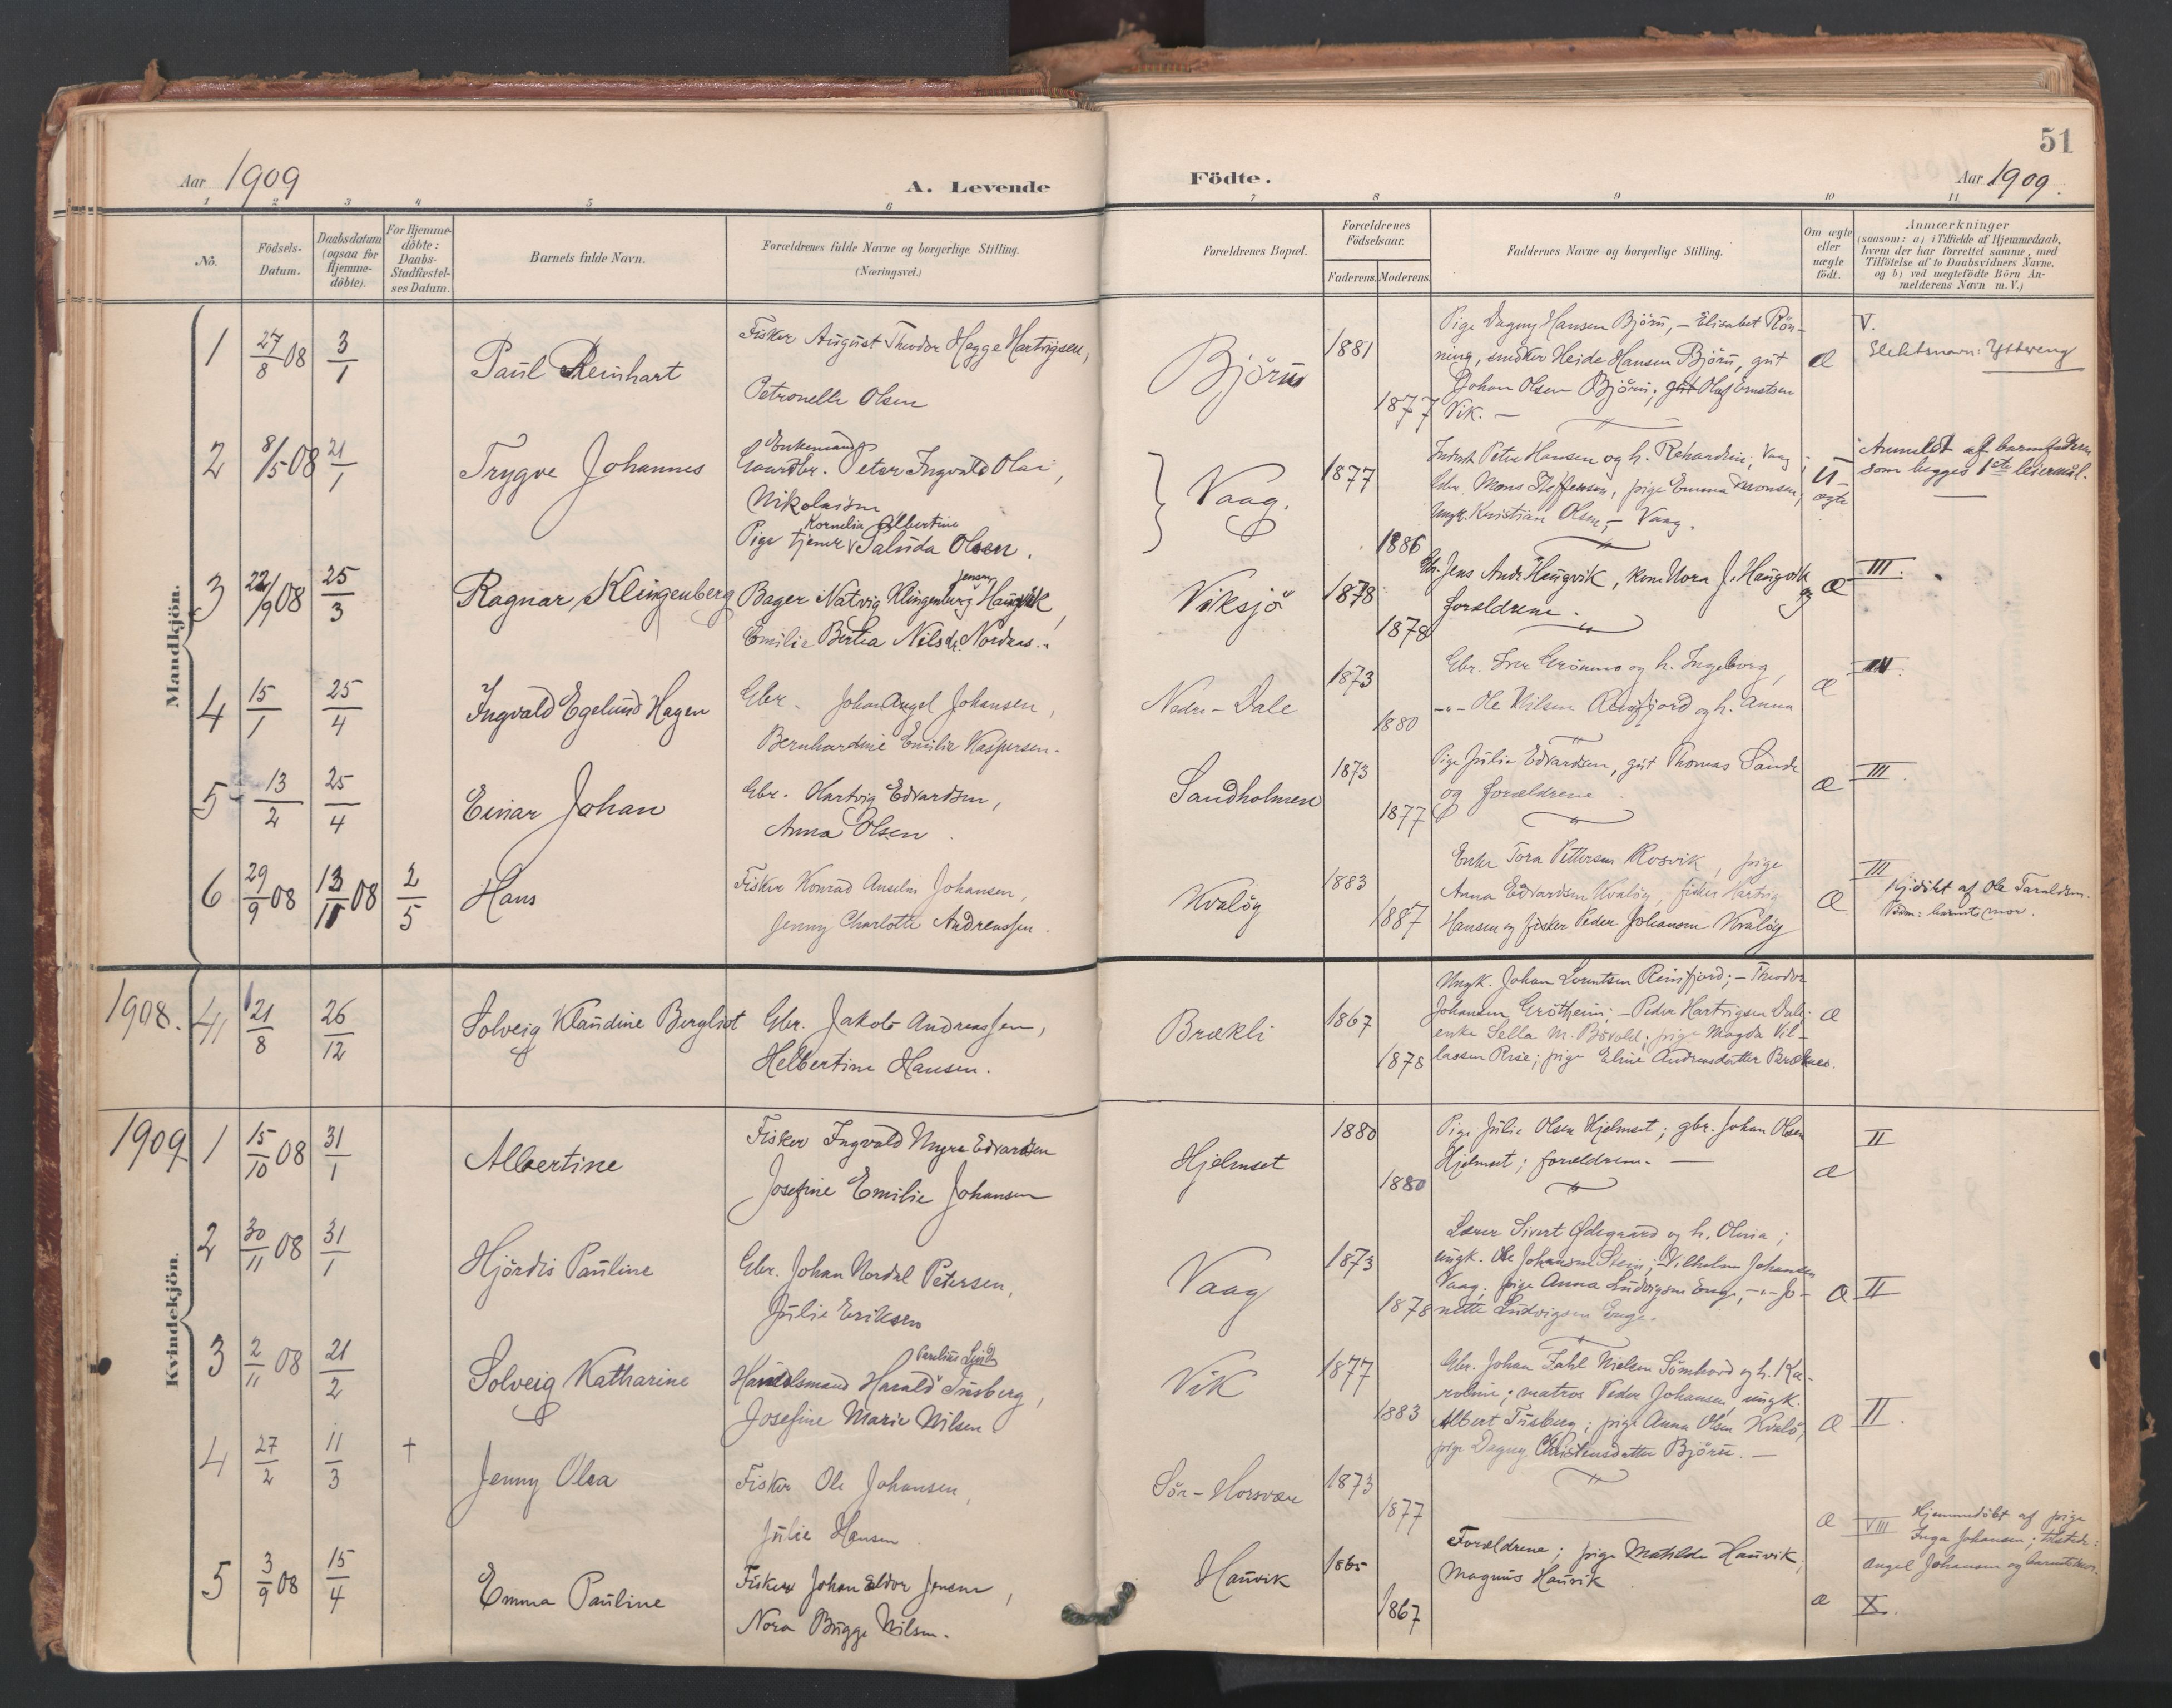 51
Aar 1909
A. Levende
Födte.
Aar 1909.
1 2 3 4 5 6 7 8 9 10 11
No.
Födsels-
Datum.
Daabsdatum
(ogsaa for
Hjemme-
döbte).
For Hjemme-
döbte:
Daabs-
Stadfæstel-
ses Datum.
Barnets fulde Navn.
Forældrenes fulde Navne og borgerlige Stilling.
(Næringsvei.)
Forældrenes Bopæl.
Forældrenes
Födselsaar.
Faderens. Moderens.
Faddernes Navne og borgerlige Stilling.
Om ægte
eller
uægte
födt.
Anmærkninger
(saasom: a) i Tilfælde af Hjemmedaab,
hvem der har forrettet samme, med
Tilföielse af to Daabsvidners Navne,
og b) ved uægtefödte Börn An-
melderens Navn m. V.)
Mandkjön.
1 27/8 08 3/1
Paul Reinhart
Fisker August Theodor Hegge Hartvigsen,
Petronelle Olsen
Björn
1881
1877
Pige Dagny Hansen Björn, – Elisabet Rön-
ning, snedker Heide Hansen Björn, gut
Johan Olsen Björn, gut Olaf Ernstsen
Vik. –
Æ
V.
Slektsnavn: Yttreng
2 8/5 08 21/1
Trygve Johannes
Enkemand
Gaardbr. Peter Ingvald Olai,
Nikolaisen
Kornelia Albertine
Pige tjener Salida Olsen.
Vaag.
1877
1886
Peter Hansen og h. Rehardine, Vaag;
Gbr. Mons Steffensen, pige Emma Monsen,
Ungk. Kristian Olsen, – Vaag.
U-
ægte
Anmeldt af barnefaderen
som begges 1ste leiermål.
3 22/9 08 25/3
Ragnar Klingenberg
Jensen
Bager Natvig Klingenberg Haugvik,
Emilie Bertea Nilsdr. Nordaas.
Viksjö
1878
1878
Gbr. Jens Andr. Haugvik, kone Nora J. Haugvik og
forældrene.
Æ
III.
4 15/1 25/4
Ingvald Egelund Hagen
Gbr. Johan Angel Johansen,
Bernhardine Emilie Kaspersen.
Nedre-Dale
1873
1880
Gbr. Iver Grönmo og h. Ingeborg,
–"– Ole Nilsen Reinfjord og h. Anna
Æ
III.
5 13/2 25/4
Einar Johan
Gbr. Hartvig Edvardsen,
Anna Olsen.
Sandholmen
1873
1877
Pige Julie Edvardsen, gut Thomas Sande
og forældrene.
Æ
III.
6 29/9 08 13/11 08 2/5
Hans
Fisker Konrad Anselm Johansen,
Jenny Charlotte Andreassen.
Kvaløy
1883
1887
Enke Tora Pettersen Rosvik, pige
Anna Edvardsen Kvaløy, fisker Hartvig
Hansen og fisker Peder Johansen Kvaløy
Æ
III
Hjdöbt af Ole Taraldsen.
Vidn: barnets mor.
1908.
41 21/8 26/12
Solveig Klaudine Bergliot
Gbr. Jakob Andreassen,
Helbertine Hansen.
Brækli
1867
1878
Ungk. Johan Lorentsen Reinfjord; – Theodor
Johansen Grötheim; – Peder Hartvigsen Dale;
enke Sella M. Bövold; pige Magda Vil-
lassen Rise; pige Eline Andreasdatter Bræknes.
Æ
1909
Kvindekjön.
1 15/10 08 31/1
Albertine
Fisker Ingvald Myre Edvardsen
Josefine Emilie Johansen
Hjelmset
1880
1880
Pige Julie Olsen Hjelmset; gbr. Johan Olsen
Hjelmset; forældrene. –
Æ
II
2 30/11 08 31/1
Hjördis Pauline
Gbr. Johan Nordal Petersen,
Julie Eriksen
Vaag
1873
1878
Lærer Sivert Ødegaard og h. Olivia;
ungk. Ole Johansen Stein; – Vilhelm Johansen
Vaag; pige Anna Ludvigsen Enge, –"– Jo-
nette Ludvigsen Enge.
Æ
II
3 2/11 08 21/2
Solveig Katharine
Handelsmand Harald Tusberg,
Josefine Marie Nilsen
Vik
1877
1883
Gbr. Johan Fahl Nielsen Sömhovd og h. Ka-
roline; matros Peder Johansen, ungk.
Albert Tusberg; pige Anna Olsen Kvalö;
pige Dagny Christensdatter Björn. –
Æ
II.
4 27/2 11/3 †
Jenny Olea
Fisker Ole Johansen,
Julie Hansen
Sör-Horsvær
1873
1877
Æ
VIII
Hjemmedöbt af pige
Inga Johansen; tilstede:
Angel Johansen og barnets mor.
5 3/9 08 15/4
Emma Pauline
Fisker Johan Eldor Jensen,
Nora Bugge Nilsen.
Hauvik
1865
1867
Forældrene; pige Matilde Hauvik,
Magnus Hauvik
Æ
X.